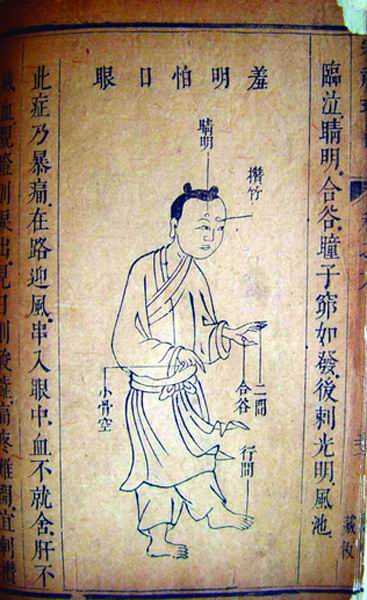 臨泣、睛明、合谷、瞳子窌、如發、後刺光明、風池、
藏板
羞明怕日眼
睛明
攢竹
二間
合谷
行間
小骨空
此症乃暴痛、在路迎風、串入眼中、血不就舍、肝不
血則淚出見日則痛疼難開、宜刺